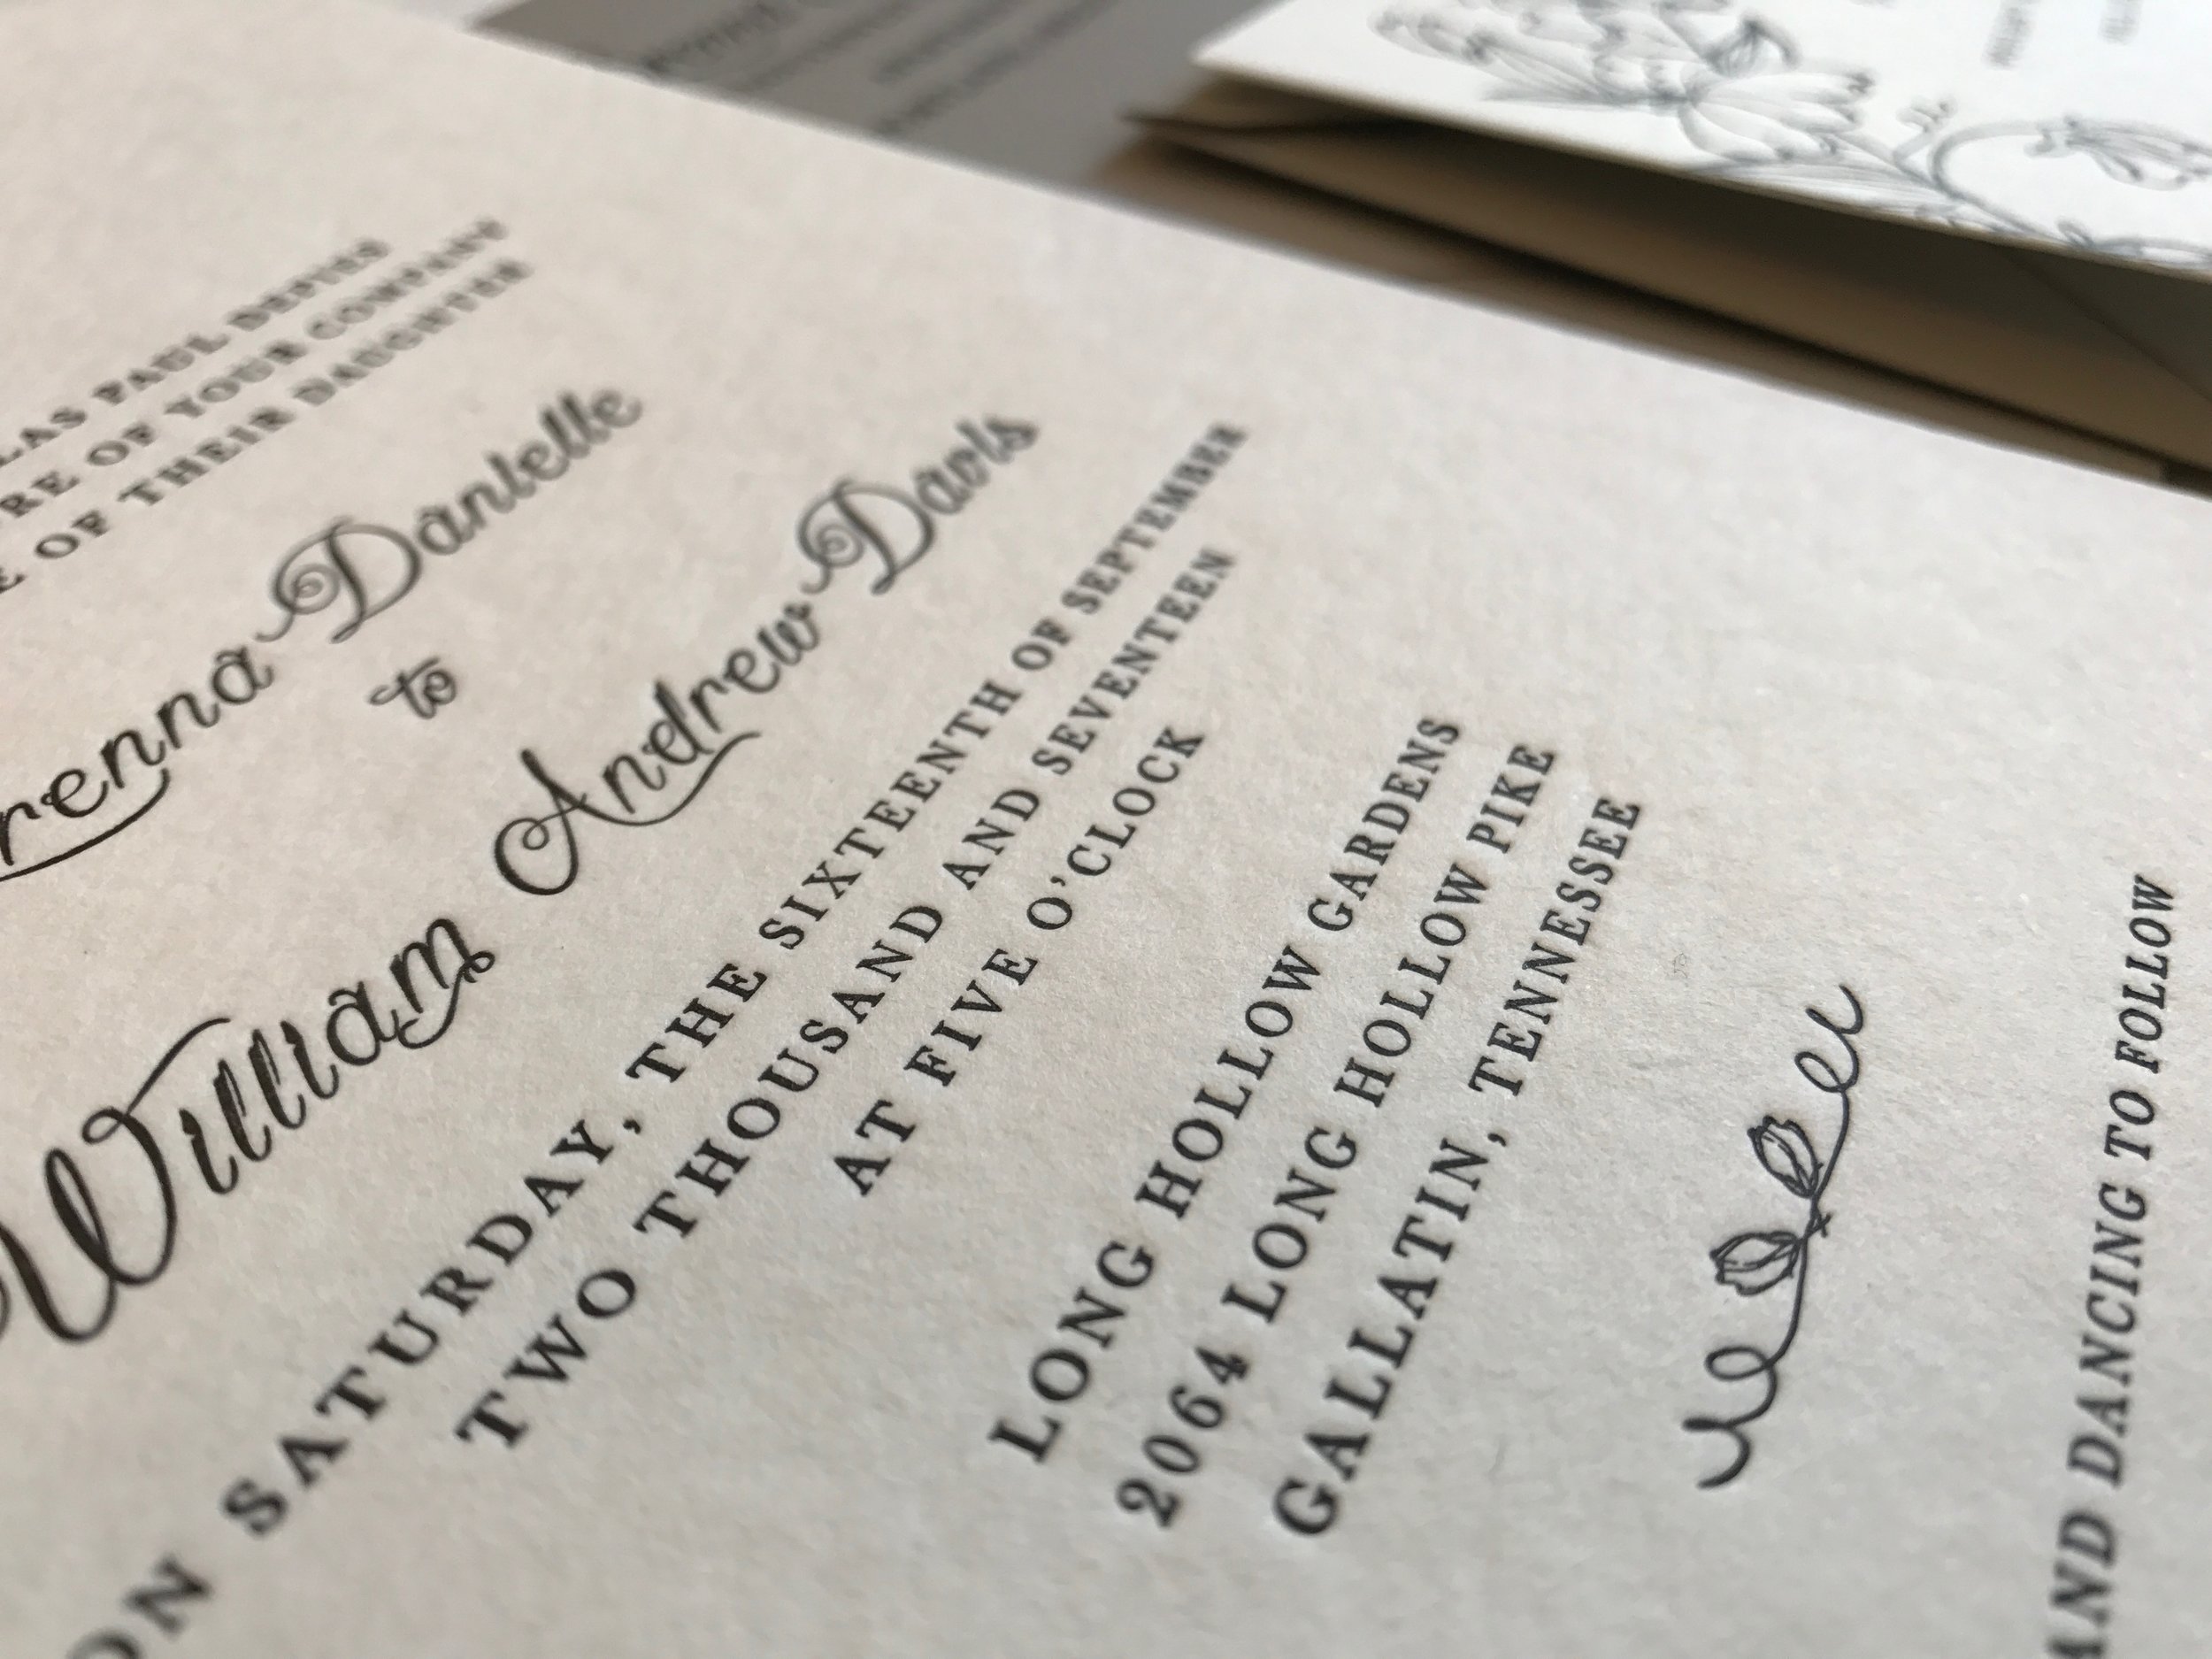 LAS PAUL DEPIES
RE OF YOUR COMPANY
E OF THEIR DAUGHTER
renna Danielle
to
William Andrew Davis
ON SATURDAY, THE SIXTEENTH OF SEPTEMBER
TWO THOUSAND AND SEVENTEEN
AT FIVE O'CLOCK
LONG HOLLOW GARDENS
2064 LONG HOLLOW PIKE
GALLATIN, TENNESSEE
AND DANCING TO FOLLOW